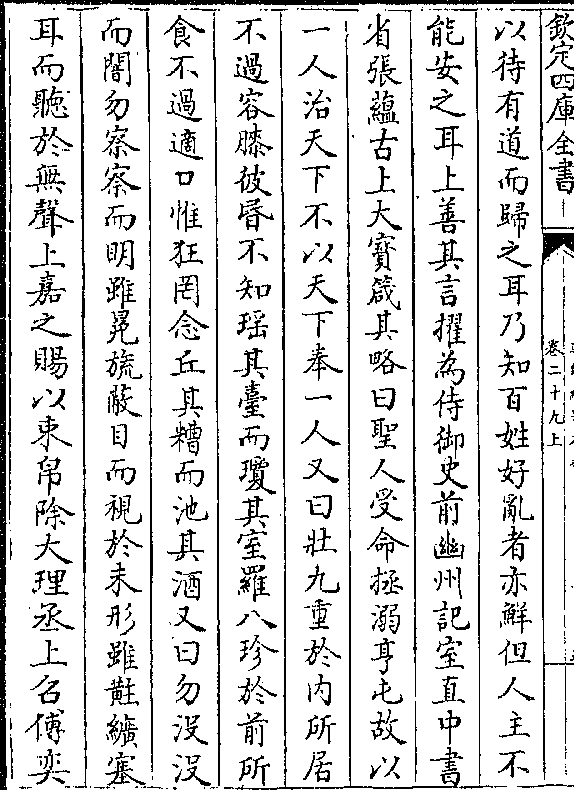 欽定四庫全書
卷二十九上
以待有道而歸之耳乃知百姓好亂者亦鮮但人主不
能安之耳上善其言擢為侍御史前幽州記室直中書
省張蘊古上大寳箴其略曰聖人受命拯溺亨屯故以
一人治天下不以天下奉一人又曰壯九重於内所居
不過容膝彼昏不知瑶其臺而瓊其室羅八珍於前所
食不過適口惟狂罔念丘其糟而池其酒又曰勿没没
而闇勿察察而明雖冕旒蔽目而視於未形雖黈纊塞
耳而聽於無聲上嘉之賜以束帛除大理丞上名傅奕